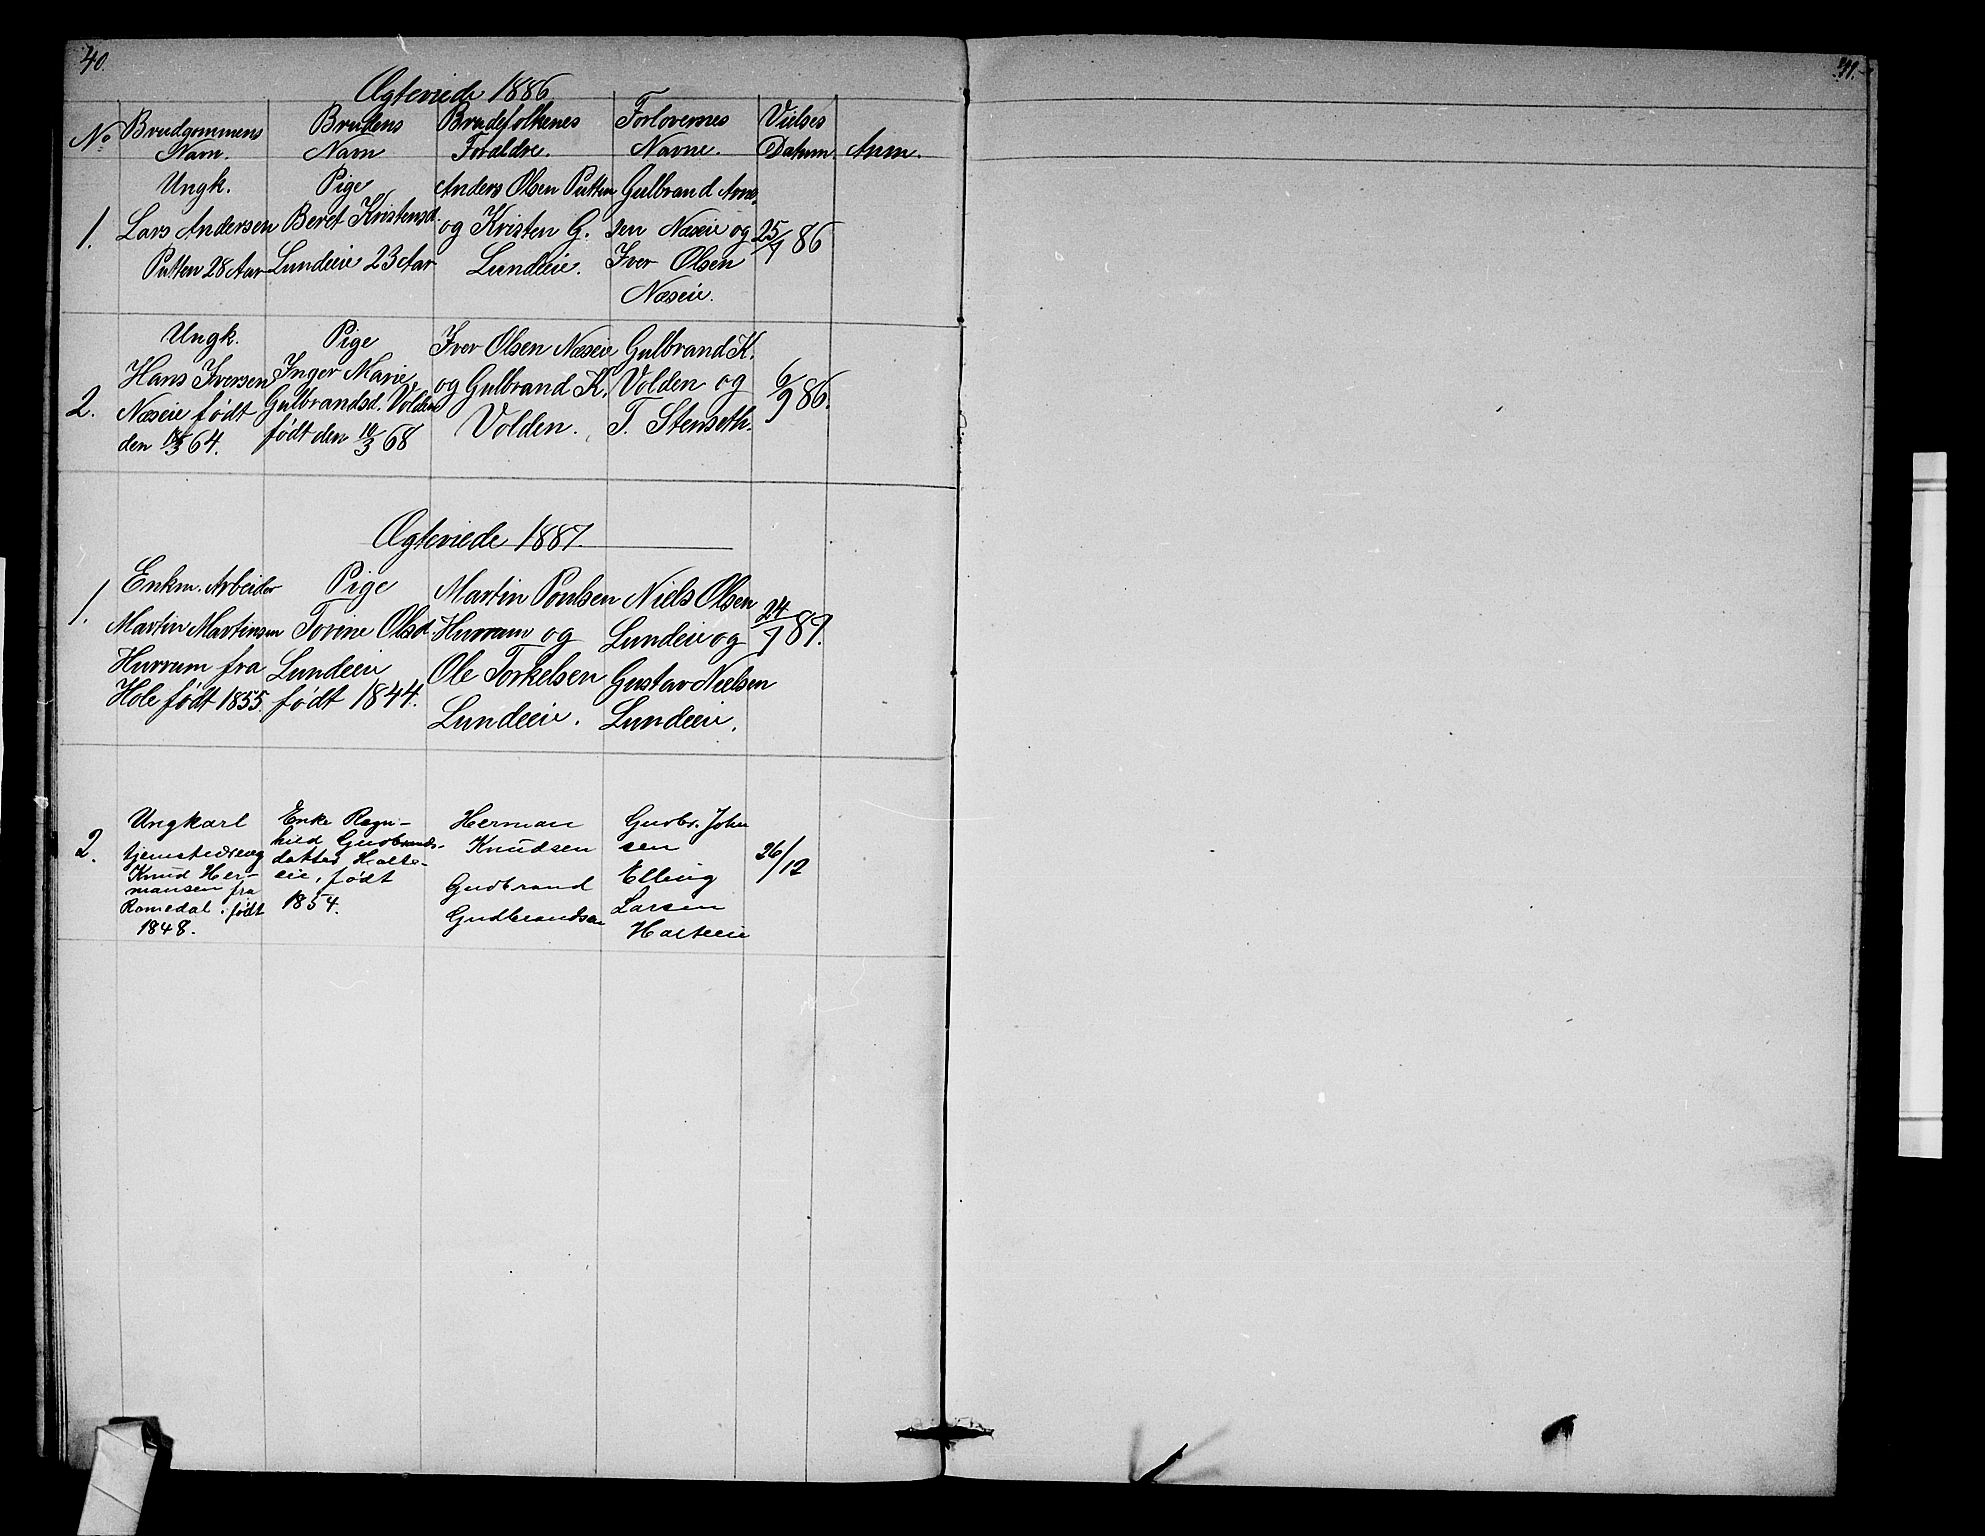 40.
41.
Ægteviede 1886
No Brudgommens Navn. Brudens Navn Brudefolkenes Forældre. Forlovernes Navne. Vielses Datum. Anm.
1.
Ungk.
Lars Andersen
Putten 28 Aar
Pige
Beret Kristensd.
Lundeie 23 Aar
Anders Olsen Putten
og Kristen G.
Lundeie.
Gulbrand Arne
sen Næseie og
Iver Olsen
Næseie.
25/7 86
2.
Ungk.
Hans Iversen
Næseie født
den 18/3 64.
Pige
Inger Marie
Gulbrandsd. Volden
født den 10/3 68
Iver Olsen Næseie
og Gulbrand K.
Volden.
Gulbrand K.
Volden og
T. Stenseth.
6/9 86.
Ægteviede 1887.
1.
Enkm. Arbeider
Martin Martinsen
Hurrum fra
Hole født 1855
Pige
Torine Olsd
Lundeie
født 1844.
Martin Poulsen
Hurrum og
Ole Torkelsen
Lundeie.
Niels Olsen
Lundeie og
Gustav Nielsen
Lundeie.
24/7 87.
2.
Ungkarl
Knud Her-
mansen fra
Romedal: født
1848.
Enke Ragn-
hild Gudbrands-
datter Holte-
eie, født
1854.
Herman
Knudsen
Gudbrand
Gudbrandsen
Gudbr. John
sen
Elling
Larsen
Holteeie
26/12